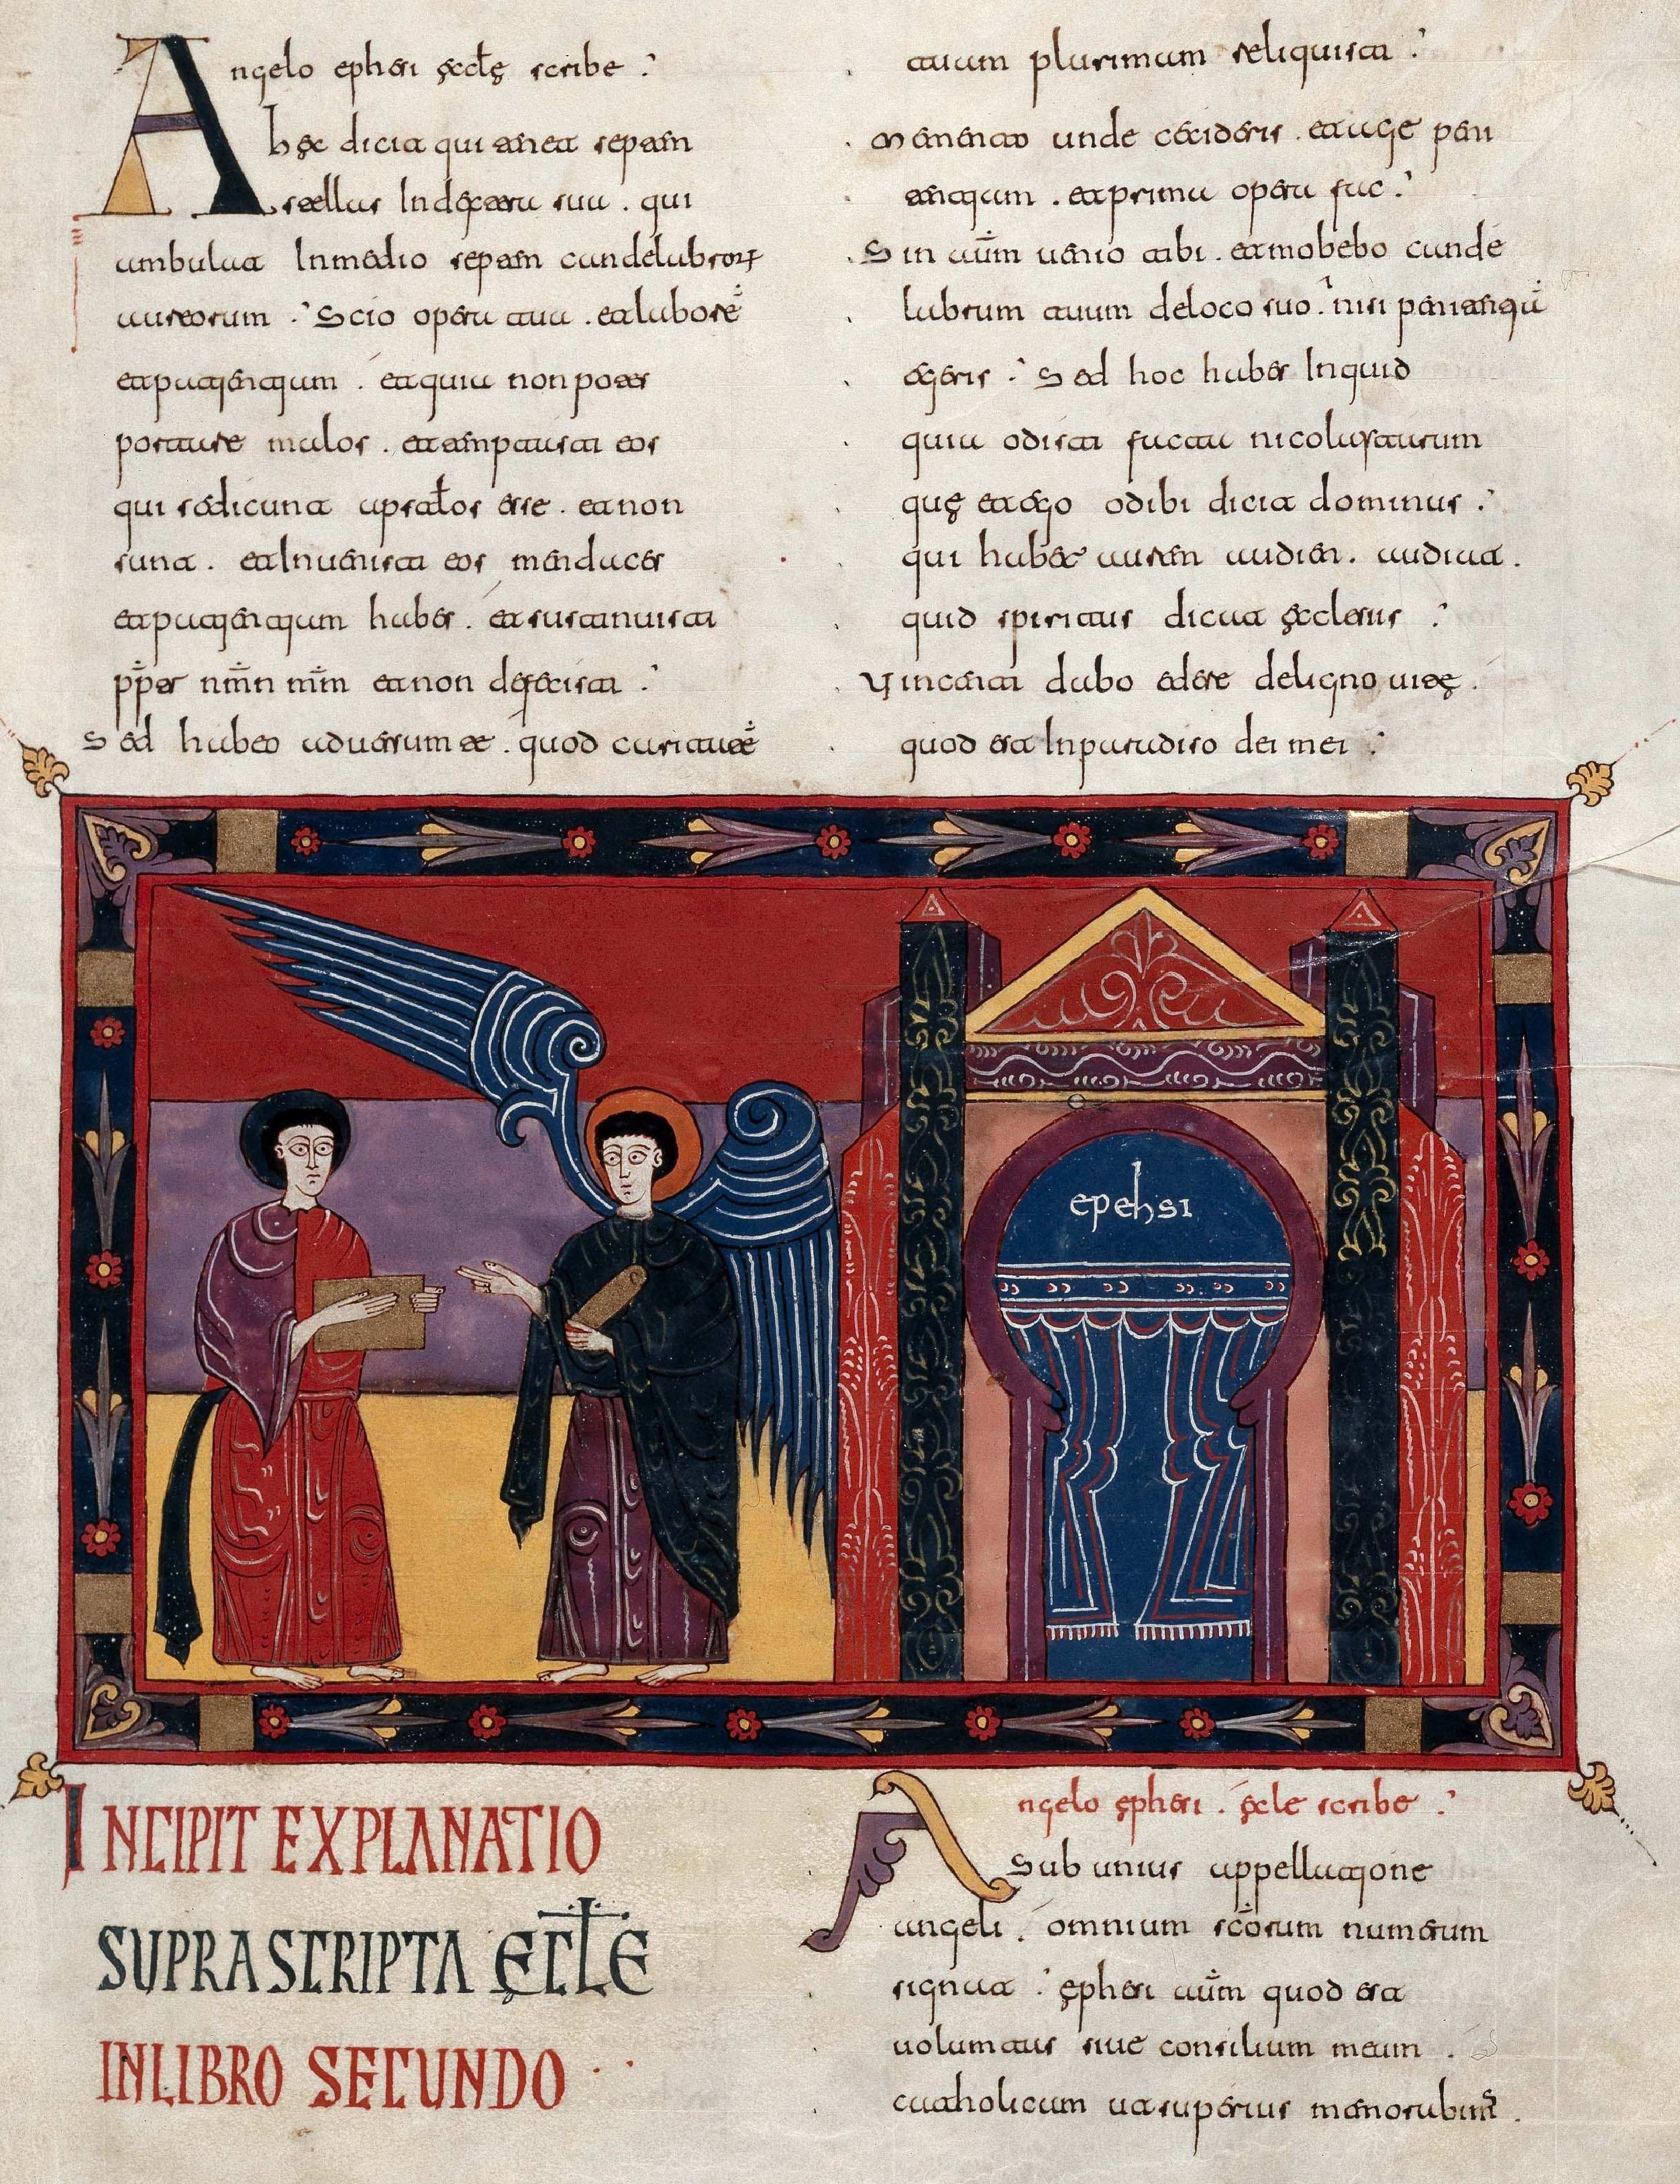 Angelo ephesi ęcctę scribe :
hęc dicit qui tenet septem
stellas In dextera sua . qui
ambulat Inmedio septem candelabrorꝝ
aureorum : Scio opera tua . et laborē
et patientiam . et quia non potes
portare malos . et temptasti eos
qui sedicunt apstłos esse . et non
sunt . et Inuenisti eos mendaces
et patientiam habes . et sustinuisti
pp̄ter nm̄n mm̄ et non defecisti :
Sed habeo aduersum te . quod caritatē
tuam plurimam reliquisti :
Memento unde cecideris . et age peni
tentiam . et prima opera fac :
Sin aum̄ uenio tibi . et mobebo cande
labrum tuum deloco suo . nisi penitentiā
egeris : Sed hoc habes Inquid
quia odisti facta nicolaytarum
quę et ego odibi dicit dominus :
qui habet aurem audien . audiat .
quid spiritus dicat ęclesiis :
Vincenti dabo edere deligno uitę .
quod est Inparadiso dei mei :
epehsi
INCIPIT EXPLANATIO
SUPRASCRIPTA ĘCŁE
INLIBRO SECUNDO
Angelo ęphesi . ęcle scribe :
Sub unius appellatione
angeli . omnium scōrum numerum
signat : ęphesi aum̄ quod est
uoluntas siue consilium meum .
catholicam ut superius memorabimꝰ .